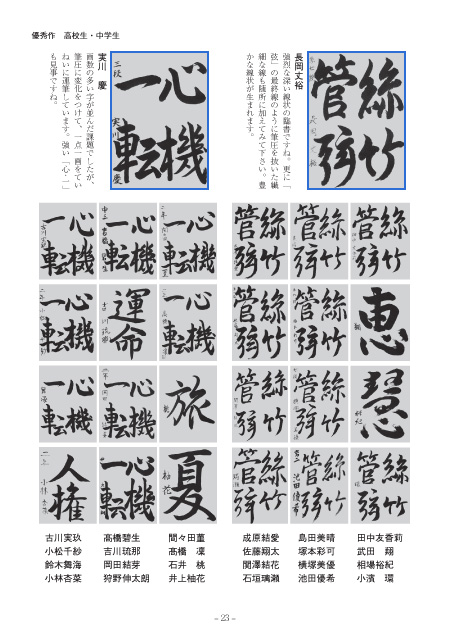 優秀作　高校生・中学生
長岡丈裕
強烈な深い線状の臨書ですね。更に「
弦」の最終線のように筆圧を抜いた繊
細な線も随所に加えてみて下さい。豊
かな線状が生まれます。
絲竹
管弦
実川　慶
画数の多い字が並んだ課題でしたが、
筆圧に変化をつけて、一点一画をてい
ねいに運筆しています。強い「心・二」
も見事ですね。
心機
一転
三段
実川慶
絲竹
管弦
絲竹
管弦
絲竹
管弦
心機
一転
心機
一転
心機
一転
恵
絲竹
管弦
絲竹
管弦
心機
一転
運命
心機
一転
慧
絲竹
管弦
絲竹
管弦
旅
心機
一転
心機
一転
絲竹
管弦
絲竹
管弦
池田優希
絲竹
管弦
夏
柚花
心機
一転
人権
田中友香莉
武田　翔
相場裕紀
小濱　環
島田美晴
塚本彩可
横塚美優
池田優希
成原結愛
佐藤翔太
関澤結花
石垣璃瀬
間々田菫
高橋　凜
石井　桃
井上柚花
高橋碧生
吉川琉那
岡田結芽
狩野伸太朗
古川実玖
小松千紗
鈴木舞海
小林杏菜
– 23 –